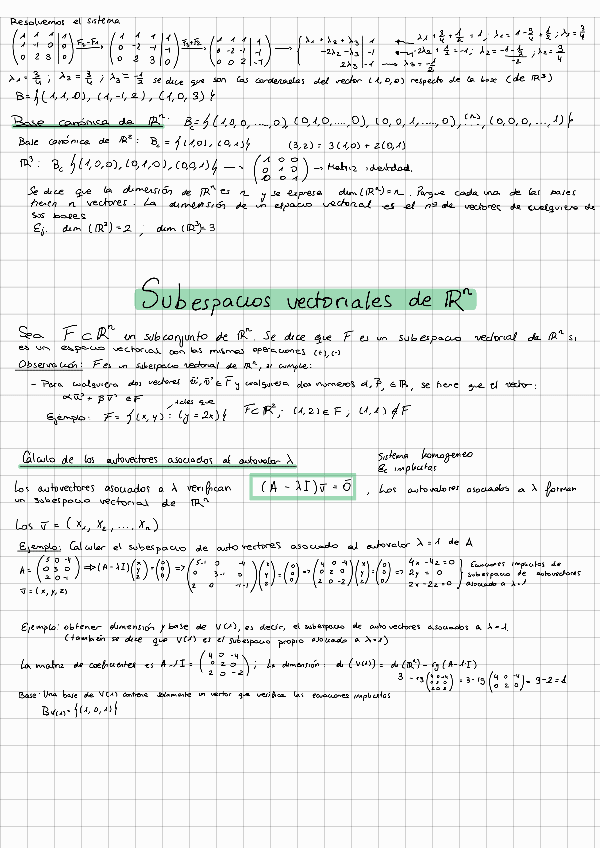 Resolvemos el sistema
( 1 1 1 | 1 ; 1 -1 0 | 0 ; 0 2 3 | 0 ) F2-F1 → ( 1 1 1 | 1 ; 0 -2 -1 | -1 ; 0 2 3 | 0 ) F3+F2 → ( 1 1 1 | 1 ; 0 -2 -1 | -1 ; 0 0 2 | -1 ) → { λ1 + λ2 + λ3 | 1 ; -2λ2 - λ3 | -1 ; 2λ3 | -1 → λ3 = -1/2
λ1 = 3/4 ; λ2 = 3/4 ; λ3 = -1/2 se dice que son las coordenadas del vector (1,0,0) respecto de la base (de ℝ³)
B = { (1,1,0), (1,-1,2), (1,0,3) }
Base canónica de ℝⁿ: Bc = { (1,0,0,...,0), (0,1,0,...,0), (0,0,1,...,0), (n)..., (0,0,0,...,1) }
Base canónica de ℝ²: Bc = { (1,0), (0,1) } (3,2) = 3(1,0) + 2(0,1)
ℝ³: Bc { (1,0,0), (0,1,0), (0,0,1) } → ( 1 0 0 ; 0 1 0 ; 0 0 1 ) → Matriz identidad.
Se dice que la dimensión de ℝⁿ es n y se expresa dim(ℝⁿ) = n. Porque cada una de las bases
tienen n vectores. La dimensión de un espacio vectorial es el nº de vectores de cualquiera de
sus bases
Ej. dim(ℝ²) = 2 ; dim(ℝ³) = 3
Subespacios vectoriales de ℝⁿ
Sea F⊂ℝⁿ un subconjunto de ℝⁿ. Se dice que F es un subespacio vectorial de ℝⁿ si
es un espacio vectorial con las mismas operaciones (+), (·)
Observación: F es un subespacio vectorial de ℝⁿ, si cumple:
- Para cualquiera dos vectores u⃗, v⃗ ∈ F y cualquiera dos números α, β, ∈ ℝ, se tiene que el vector:
αu⃗ + βv⃗ ∈ F
tales que
Ejemplo: F = { (x,y) : (y = 2x) } F⊂ℝ², (1,2) ∈ F, (1,1) ∉ F
Cálculo de los autovectores asociados al autovalor λ
Sistema homogéneo
Ec implícitas
Los autovectores asociados a λ verifican (A - λI)v̄ = 0̄, Los autovalores asociados a λ forman
un subespacio vectorial de ℝⁿ
Los v̄ = (x1, x2, ..., xn)
Ejemplo: Calcular el subespacio de autovectores asociado al autovalor λ = 1 de A
A = ( 5 0 -4 ; 0 3 0 ; 2 0 -1 ) ⇒ (A - λI)( x ; y ; z ) = ( 0 ; 0 ; 0 ) ⇒ ( 5-1 0 -4 ; 0 3-1 0 ; 2 0 -1-1 )( x ; y ; z ) = ( 0 ; 0 ; 0 ) ⇒ ( 4 0 -4 ; 0 2 0 ; 2 0 -2 )( x ; y ; z ) = ( 0 ; 0 ; 0 ) ⇒ 4x - 4z = 0 ; 2y = 0 ; 2x - 2z = 0 } Ecuaciones implícitas de subespacio de autovectores asociado a λ=1
v̄ = (x, y, z)
Ejemplo: obtener dimensión y base de V(1), es decir, el subespacio de autovectores asociados a λ = 1
(también se dice que V(1) es el subespacio propio asociado a λ = 1)
La matriz de coeficientes es A - 1·I = ( 4 0 -4 ; 0 2 0 ; 2 0 -2 ) ; La dimensión: di (V(1)) = di (ℝⁿ) - rg (A - 1·I)
3 - rg ( 4 0 -4 ; 0 2 0 ; 2 0 -2 ) = 3 - rg ( 4 0 -4 ; 0 2 0 ) = 3 - 2 = 1
Base: Una base de V(1) contiene solamente un vector que verifica las ecuaciones implícitas
B V(1) = { (1,0,1) }